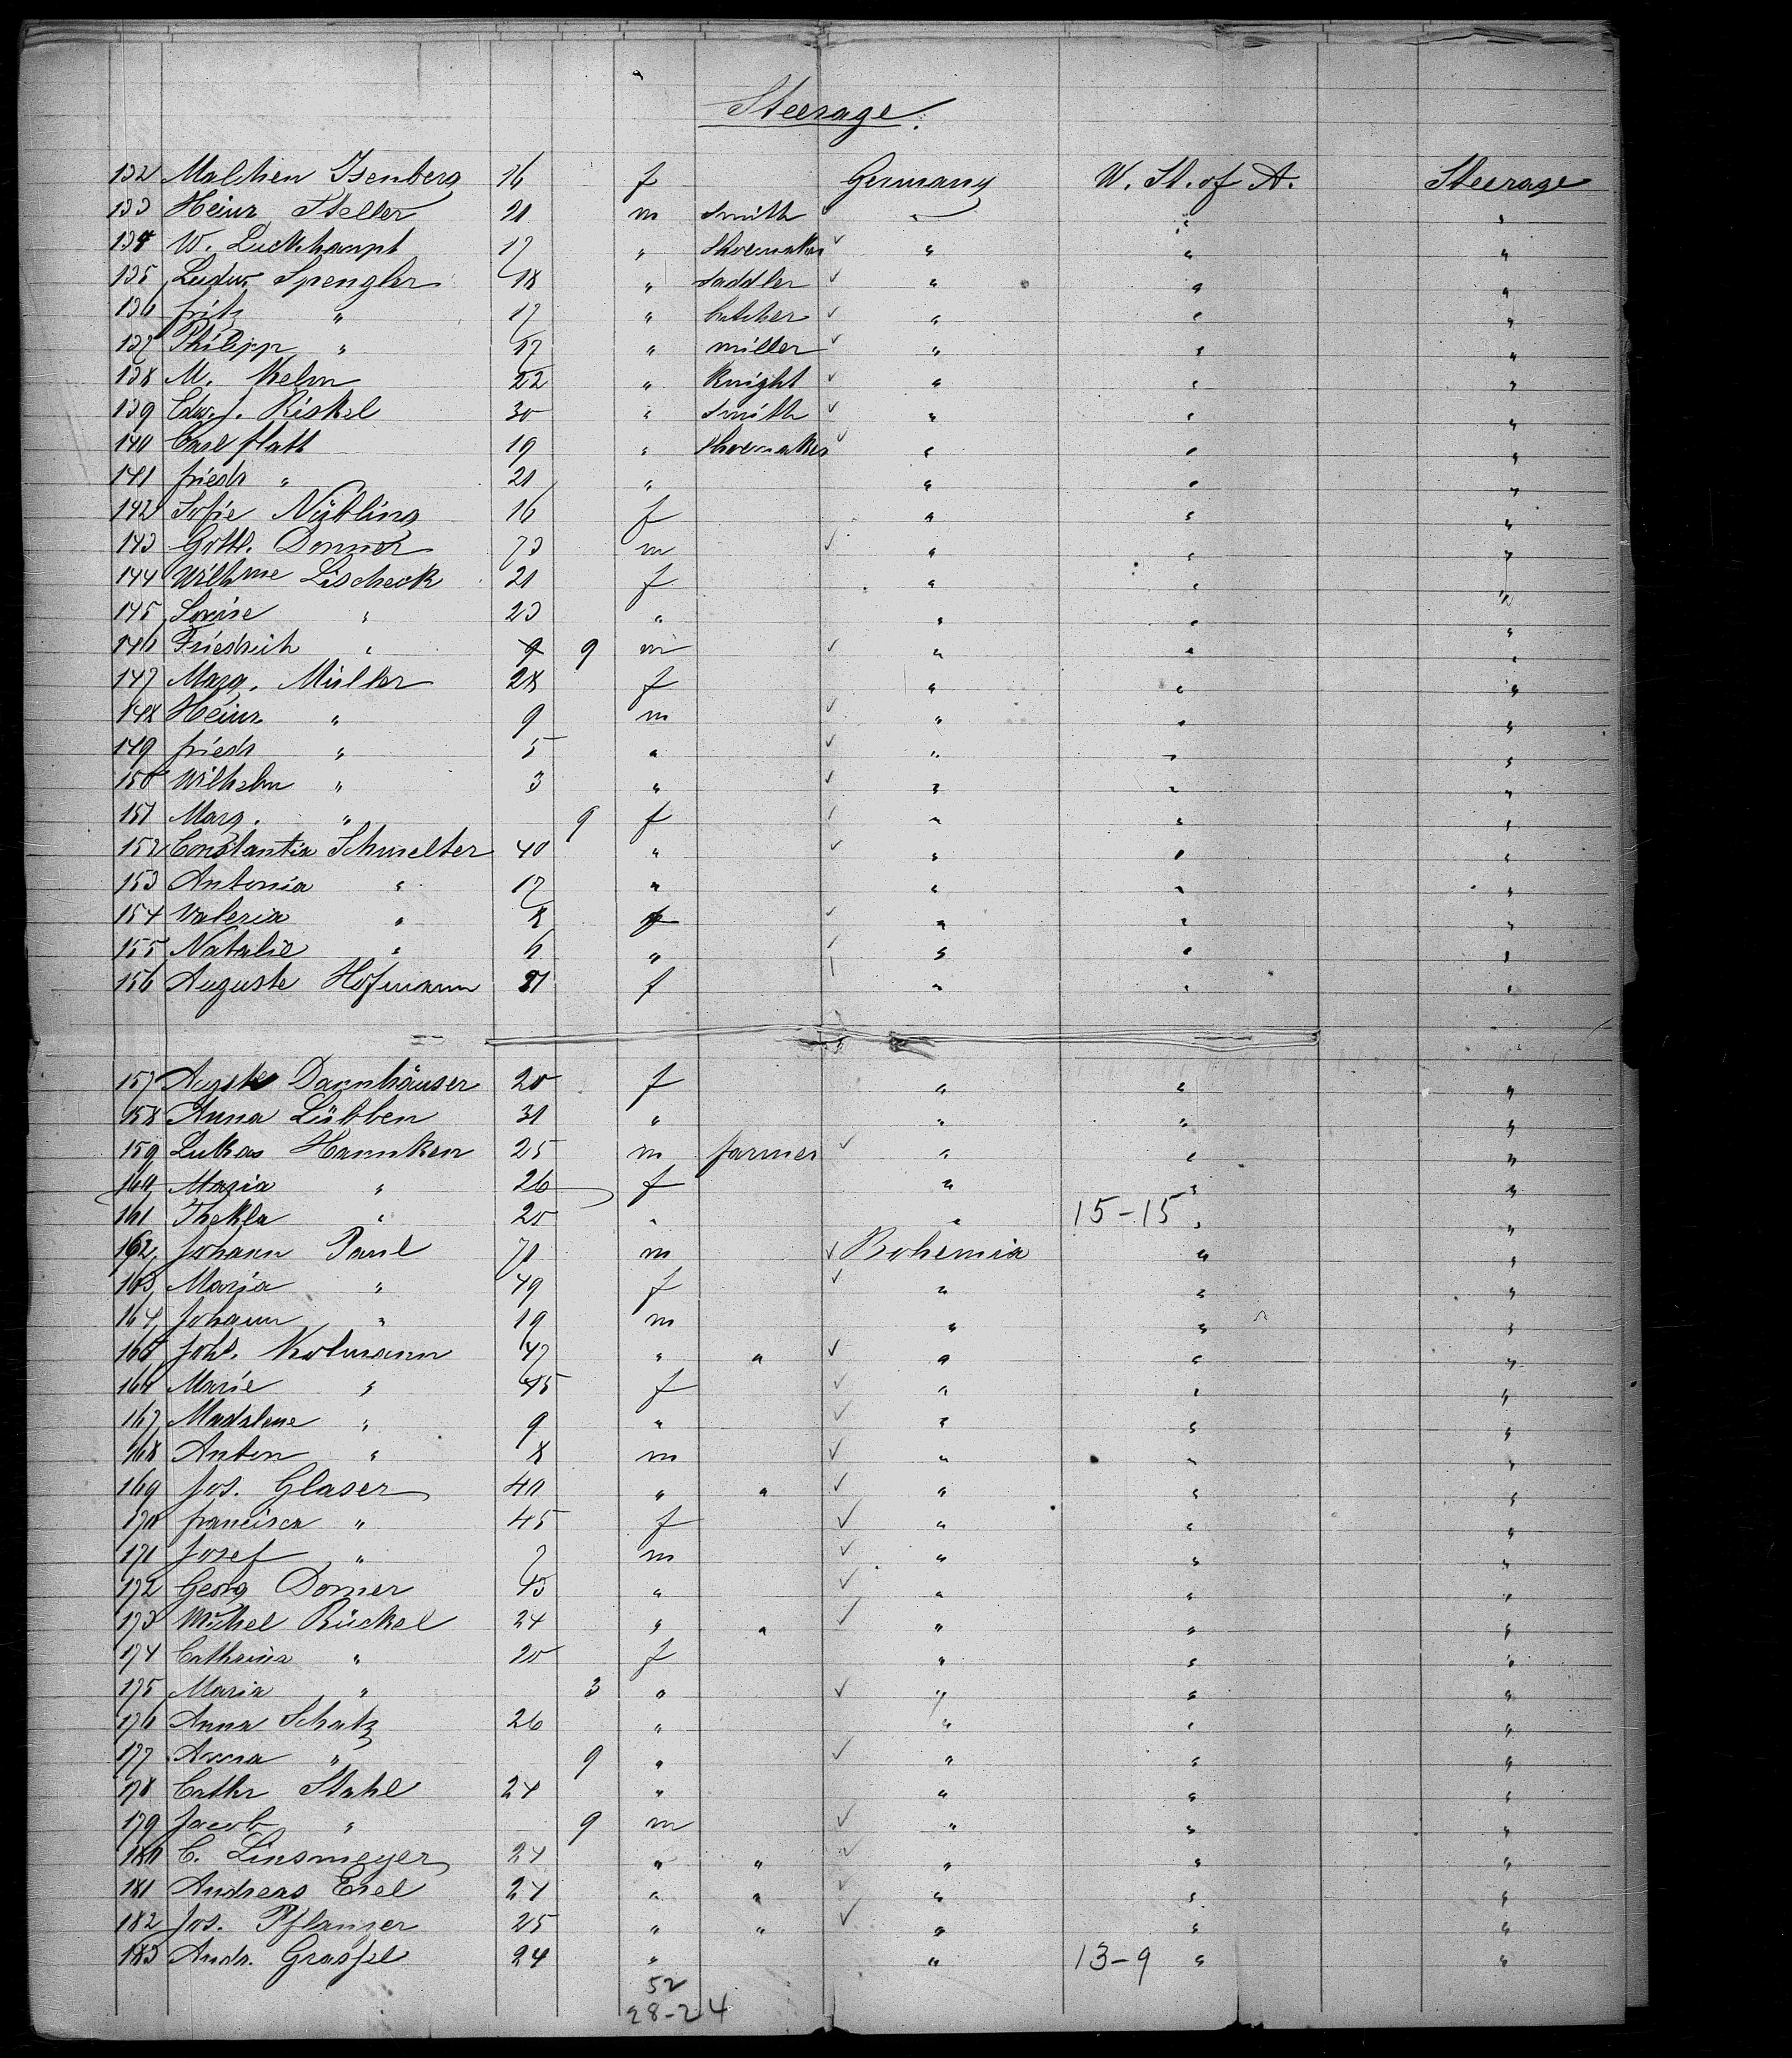 Steerage.
132 Malchen Isenberg 16 f Germany U. St. of A. Steerage
133 Heinr Steller 21 m Smith ✓ " " "
134 W. Luckhaupt 17 " Shoemaker ✓ " " "
135 Ludw. Spengler 18 " Saddler ✓ " " "
136 Fritz " 17 " butcher ✓ " " "
137 Philipp " 17 " miller ✓ " " "
138 M. Kelm 22 " Knight ✓ " " "
139 Edw. J. Riskel 30 " Smith ✓ " " "
140 Carl Flatt 19 " Shoemaker ✓ " " "
141 Friedr " 21 " " " "
142 Sofie Nübling 16 f " " "
143 Gottl. Donner 73 m ✓ " " "
144 Wilhme Lischeck 21 f " " "
145 Louise " 23 " " " "
146 Friedrich " 9 9 m ✓ " " "
147 Marg. Müller 28 f " " "
148 Heinr. " 9 m ✓ " " "
149 Friedr " 5 " ✓ " " "
150 Wilhelm " 3 " ✓ " " "
151 Marg. " 9 f ✓ " " "
152 Constantia Schmelter 40 " ✓ " " "
153 Antonia " 17 " " " "
154 Valeria " 8 f ✓ " " "
155 Natalie " 6 " ✓ " " "
156 Auguste Hofmann 21 f " " "
157 Auguste Dannhäuser 20 f " " "
158 Anna Lübben 31 " " " "
159 Lukas Hannken 25 m farmer ✓ " " "
160 Maria " 26 f " " "
161 Thekla " 20 " " 15-15 " "
162 Johann Paul 70 m ✓ Bohemia " "
163 Maria " 49 f ✓ " " "
164 Johann " 19 m " " "
165 Joh. Kolmann 47 " " ✓ " " "
166 Marie " 45 f ✓ " " "
167 Madalene " 9 " ✓ " " "
168 Anton " 8 m ✓ " " "
169 Jos. Glaser 40 " " ✓ " " "
170 Francisca " 45 f ✓ " " "
171 Josef " 7 m ✓ " " "
172 Georg Dorner 43 " ✓ " " "
173 Michel Rückel 24 " " ✓ " " "
174 Cathrina " 20 f " " "
175 Maria " 3 " ✓ " " "
176 Anna Schatz 26 " " " "
177 Anna " 9 " ✓ " " "
178 Cathr Stahl 24 " " " "
179 Jacob " 9 m ✓ " " "
180 C. Linsmeyer 24 " " ✓ " " "
181 Andreas Esel 24 " " ✓ " " "
182 Jos. Pflanzer 25 " " ✓ " " "
183 Andr. Grassel 24 " " 13-9 " "
52
28-24